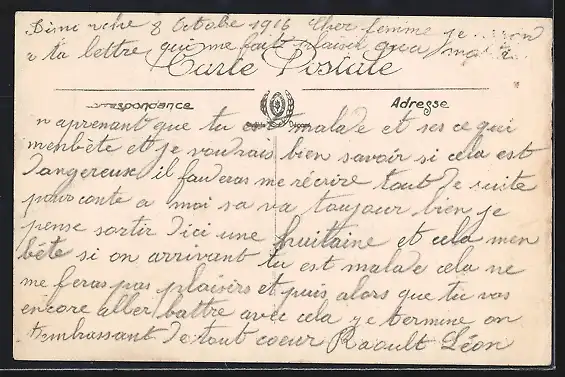 Dimenche 8 Octobre 1916 Cher femme je
a ta lettre qui me fait plaisir qua
Carte Postale
Correspondance
Adresse
n aprenant que tu est malade et ses ce qui
menbète et je voudrais bien savoir si cela est
dangereuse il fauderas me récrire tout de suite
pour conte a moi sa va toujour bien je
pense sortir dici une huitaine et cela men
bête si on arrivant tu est malade cela ne
me feras pas plaisirs et puis alors que tu vas
encore aller battre avec cela je termine on
tembrassant de tout coeur Raoult Léon